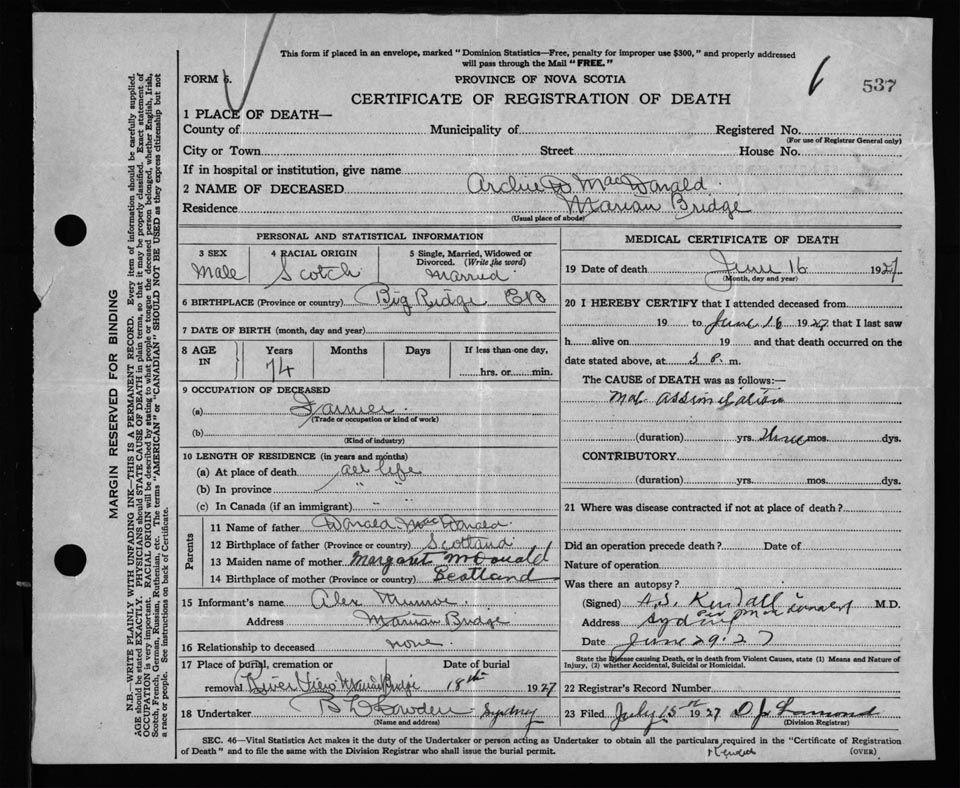 This form if placed in an envelope, marked "Dominion Statistics—Free, penalty for improper use $300," and properly addressed
will pass through the Mail "FREE."
FORM 6. PROVINCE OF NOVA SCOTIA 537
CERTIFICATE OF REGISTRATION OF DEATH
1 PLACE OF DEATH—
County of Municipality of Registered No.
(For use of Registrar General only)
City or Town Street House No.
If in hospital or institution, give name
2 NAME OF DECEASED Archie D MacDonald
Residence Marian Bridge
(Usual place of abode)
PERSONAL AND STATISTICAL INFORMATION
3 SEX 4 RACIAL ORIGIN 5 Single, Married, Widowed or
Divorced. (Write the word)
Male Scotch Married
6 BIRTHPLACE (Province or country) Big Ridge CB
7 DATE OF BIRTH (month, day and year)
8 AGE IN Years Months Days If less than one day,
74 hrs. or min.
9 OCCUPATION OF DECEASED
(a) Farmer
(Trade or occupation or kind of work)
(b)
(Kind of industry)
10 LENGTH OF RESIDENCE (in years and months)
(a) At place of death all life
(b) In province " "
(c) In Canada (if an immigrant) " "
Parents
11 Name of father Donald MacDonald
12 Birthplace of father (Province or country) Scotland
13 Maiden name of mother Margaret McDonald
14 Birthplace of mother (Province or country) Scotland
15 Informant's name Alex Munroe
Address Marian Bridge
16 Relationship to deceased none
17 Place of burial, cremation or Date of burial
removal River View Marian Bridge 18th 1927
18 Undertaker Sydney
(Name and address)
MEDICAL CERTIFICATE OF DEATH
19 Date of death June 16 1927
(Month, day and year)
20 I HEREBY CERTIFY that I attended deceased from
19 to June 16 1927 that I last saw
h alive on 19 and that death occurred on the
date stated above, at P. m.
The CAUSE OF DEATH was as follows:—
Mal assimilation
(duration) yrs. three mos. dys.
CONTRIBUTORY
(duration) yrs. mos. dys.
21 Where was disease contracted if not at place of death?
Did an operation precede death? Date of
Nature of operation
Was there an autopsy?
(Signed) A.S. Kendall M.D.
Address Sydney
Date June 29. 27
State the Disease causing Death, or in death from Violent Causes, state (1) Means and Nature of
Injury, (2) whether Accidental, Suicidal or Homicidal.
22 Registrar's Record Number
23 Filed July 15th 1927 D. J. Lamond
(Division Registrar)
SEC. 46—Vital Statistics Act makes it the duty of the Undertaker or person acting as Undertaker to obtain all the particulars required in the "Certificate of Registration
of Death" and to file the same with the Division Registrar who shall issue the burial permit. (OVER)
MARGIN RESERVED FOR BINDING
N.B.—WRITE PLAINLY WITH UNFADING INK—THIS IS A PERMANENT RECORD. Every item of information should be carefully supplied.
AGE should be stated EXACTLY. PHYSICIANS should STATE CAUSE OF DEATH in plain terms, so that it may be properly classified. Exact statement of
OCCUPATION is very important. RACIAL ORIGIN will be described by stating to what people or tongue the deceased person belonged, whether English, Irish,
Scotch, French, German, Russian, Ruthenian, etc. The terms "AMERICAN" or "CANADIAN" SHOULD NOT BE USED as they express citizenship but not
a race or people. See instructions on back of Certificate.